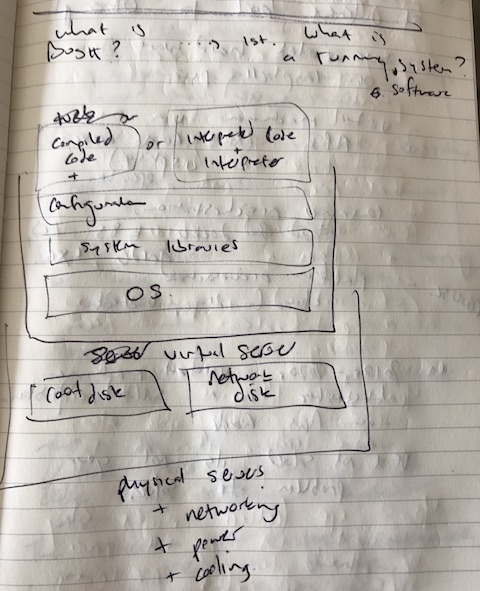 what is
BOSH? ......→ 1st. What is
a running system?
software
Compiled
Code
+
or
Interpreted Code
+
Interpreter
Configuration
System libraries
OS.
virtual server
root disk
Network
disk
physical servers
+ networking
+ power
+ cooling